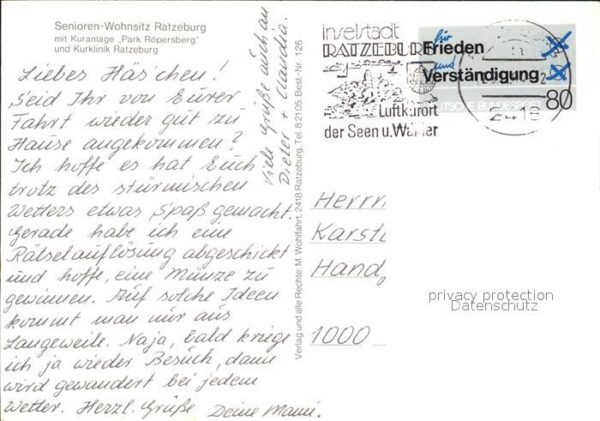 Senioren-Wohnsitz Ratzeburg
mit Kuranlage „Park Röpersberg"
und Kurklinik Ratzeburg
Liebes Häs'chen!
Seid Ihr von Eurer
Fahrt wieder gut zu
Hause angekommen?
Ich hoffe es hat Euch
trotz des stürmischen
Wetters etwas Spaß gemacht.
Gerade habe ich eine
Rätselauflösung abgeschickt
und hoffe, eine Münze zu
gewinnen. Auf solche Ideen
kommt man nur aus
Langeweile. Naja, bald kriege
ich ja wieder Besuch, dann
wird gewandert bei jedem
Wetter. Herzl. Grüße Deine Mami.
Viele Grüße auch an
Dieter + Claudia.
Verlag und alle Rechte: M. Wohlfahrt, 2418 Ratzeburg, Tel. 8 21 05 Best.-Nr. 126
Inselstadt
RATZEBURG
Luftkurort
der Seen u. Wälder
für
Frieden
und
Verständigung
DEUTSCHE BUNDESPOST
80
2418
Herrn
Karst
Hand
1000
privacy protection
Datenschutz